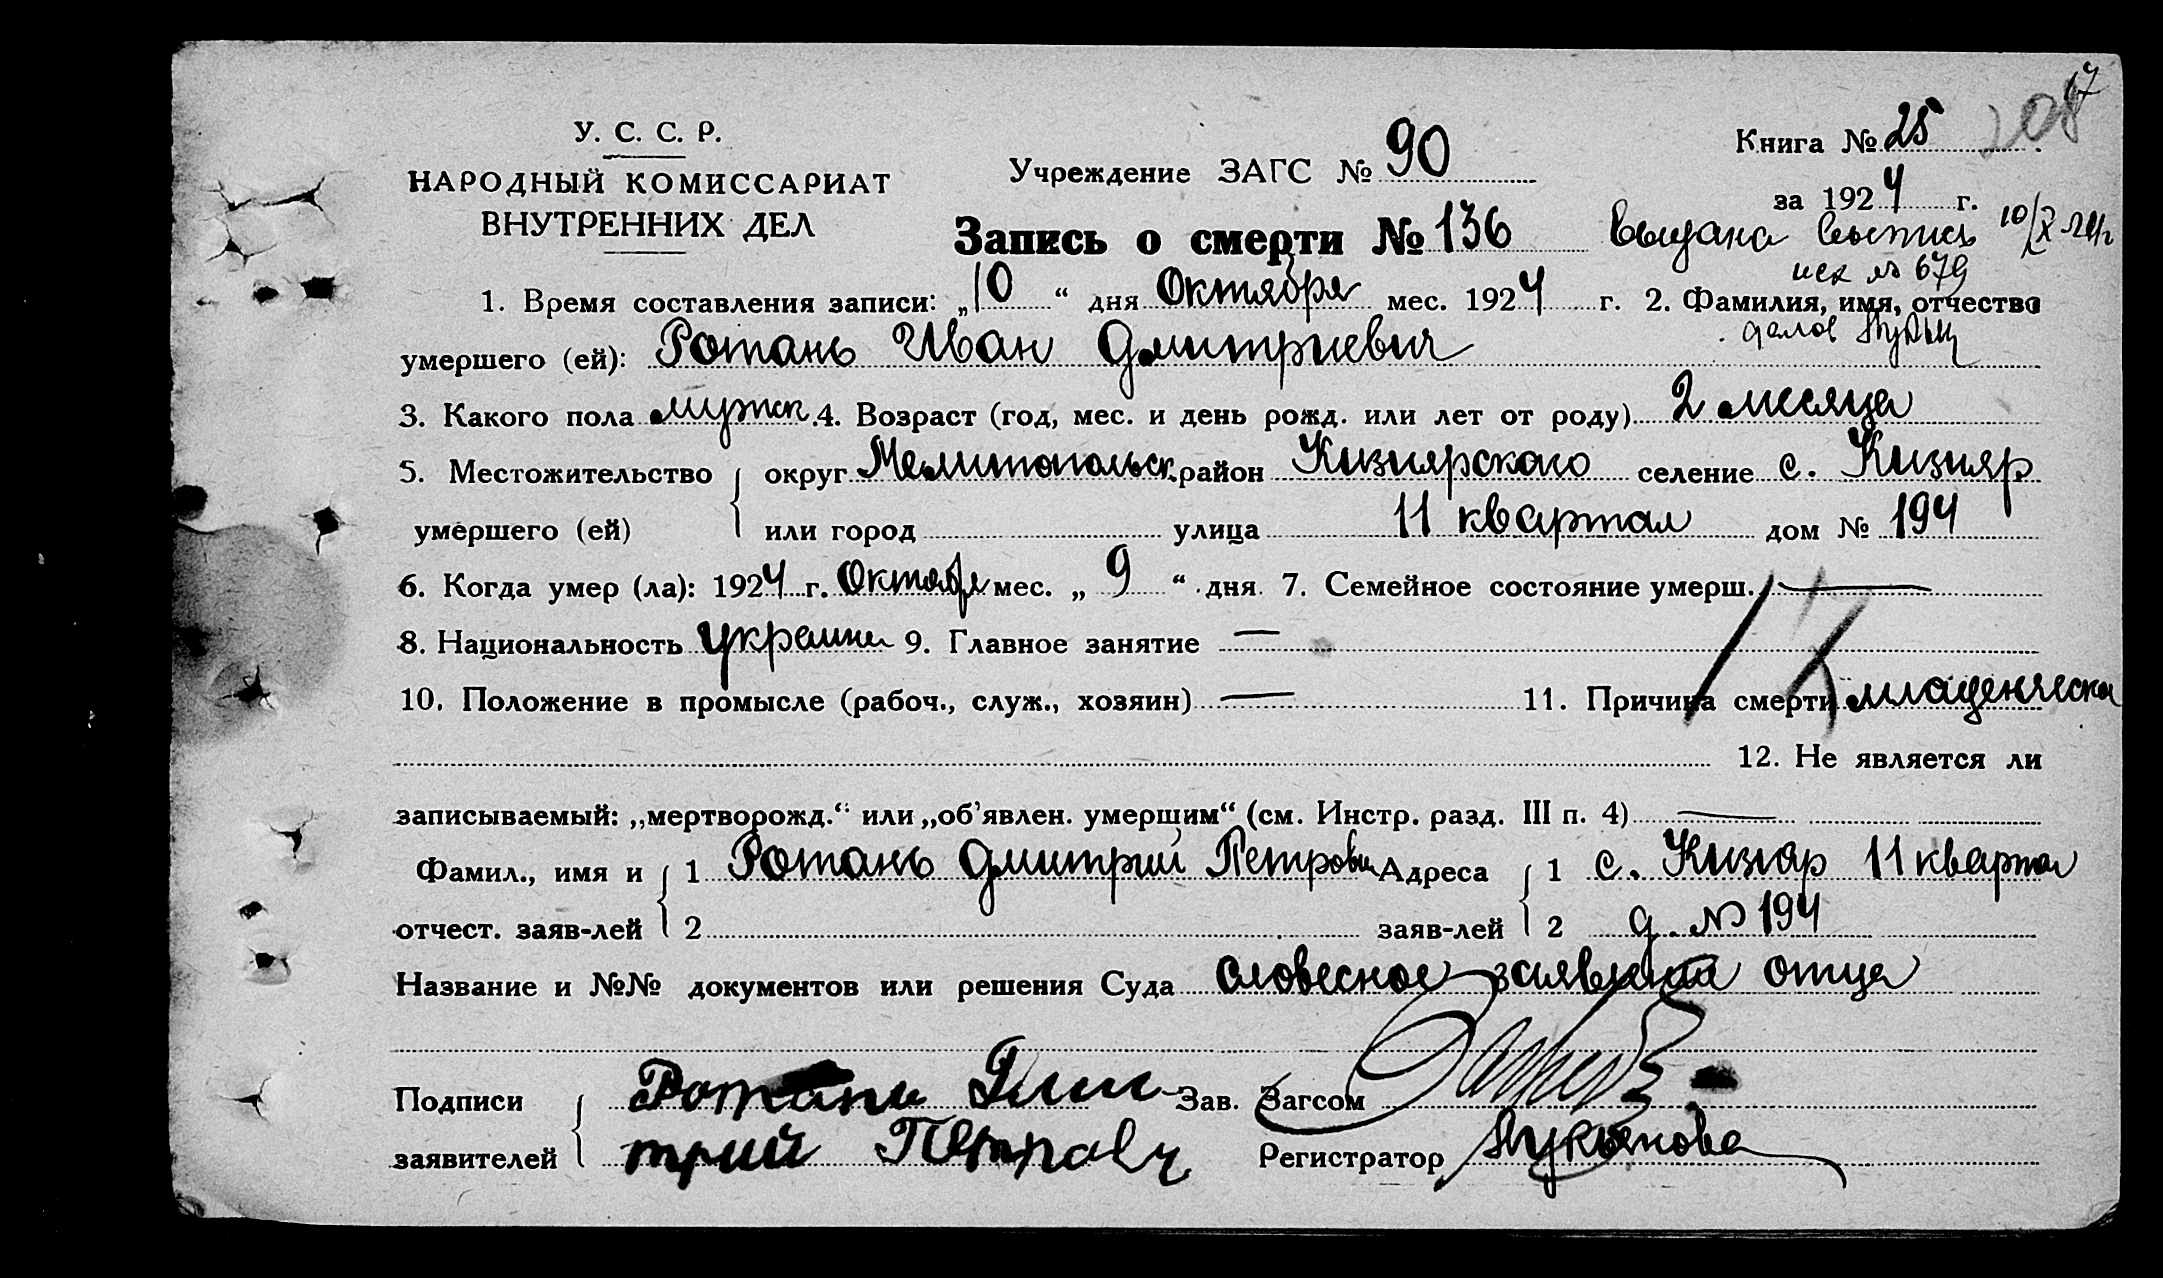 17
208
У. С. С. Р.
НАРОДНЫЙ КОМИССАРИАТ
ВНУТРЕННИХ ДЕЛ
Учреждение ЗАГС № 90
Книга № 25
за 1924 г.
Запись о смерти № 136
Выдана выпись 10/X 24 г
исх № 679
1. Время составления записи: „10“ дня Октября мес. 1924 г. 2. Фамилия, имя, отчество
умершего (ей): Ротань Иван Дмитриевич
3. Какого пола мужск. 4. Возраст (год, мес. и день рожд. или лет от роду) 2 месяца
5. Местожительство округ Мелитопольск. район Кизиярского селение с. Кизияр
умершего (ей) или город улица 11 квартал дом № 194
6. Когда умер (ла): 1924 г. Октября мес. „9“ дня 7. Семейное состояние умерш. —
8. Национальность украин 9. Главное занятие —
10. Положение в промысле (рабоч., служ., хозяин) — 11. Причина смерти младенческая
12. Не является ли
записываемый: „мертворожд.“ или „об’явлен. умершим“ (см. Инстр. разд. III п. 4) —
Фамил., имя и 1 Ротань Дмитрий Петрович Адреса 1 с. Кизияр 11 квартал
отчест. заяв-лей 2 заяв-лей 2 д. № 194
Название и №№ документов или решения Суда словесное заявление отца
Подписи Ротань Дми- Зав. Загсом
заявителей трий Петрович Регистратор Лукьянова